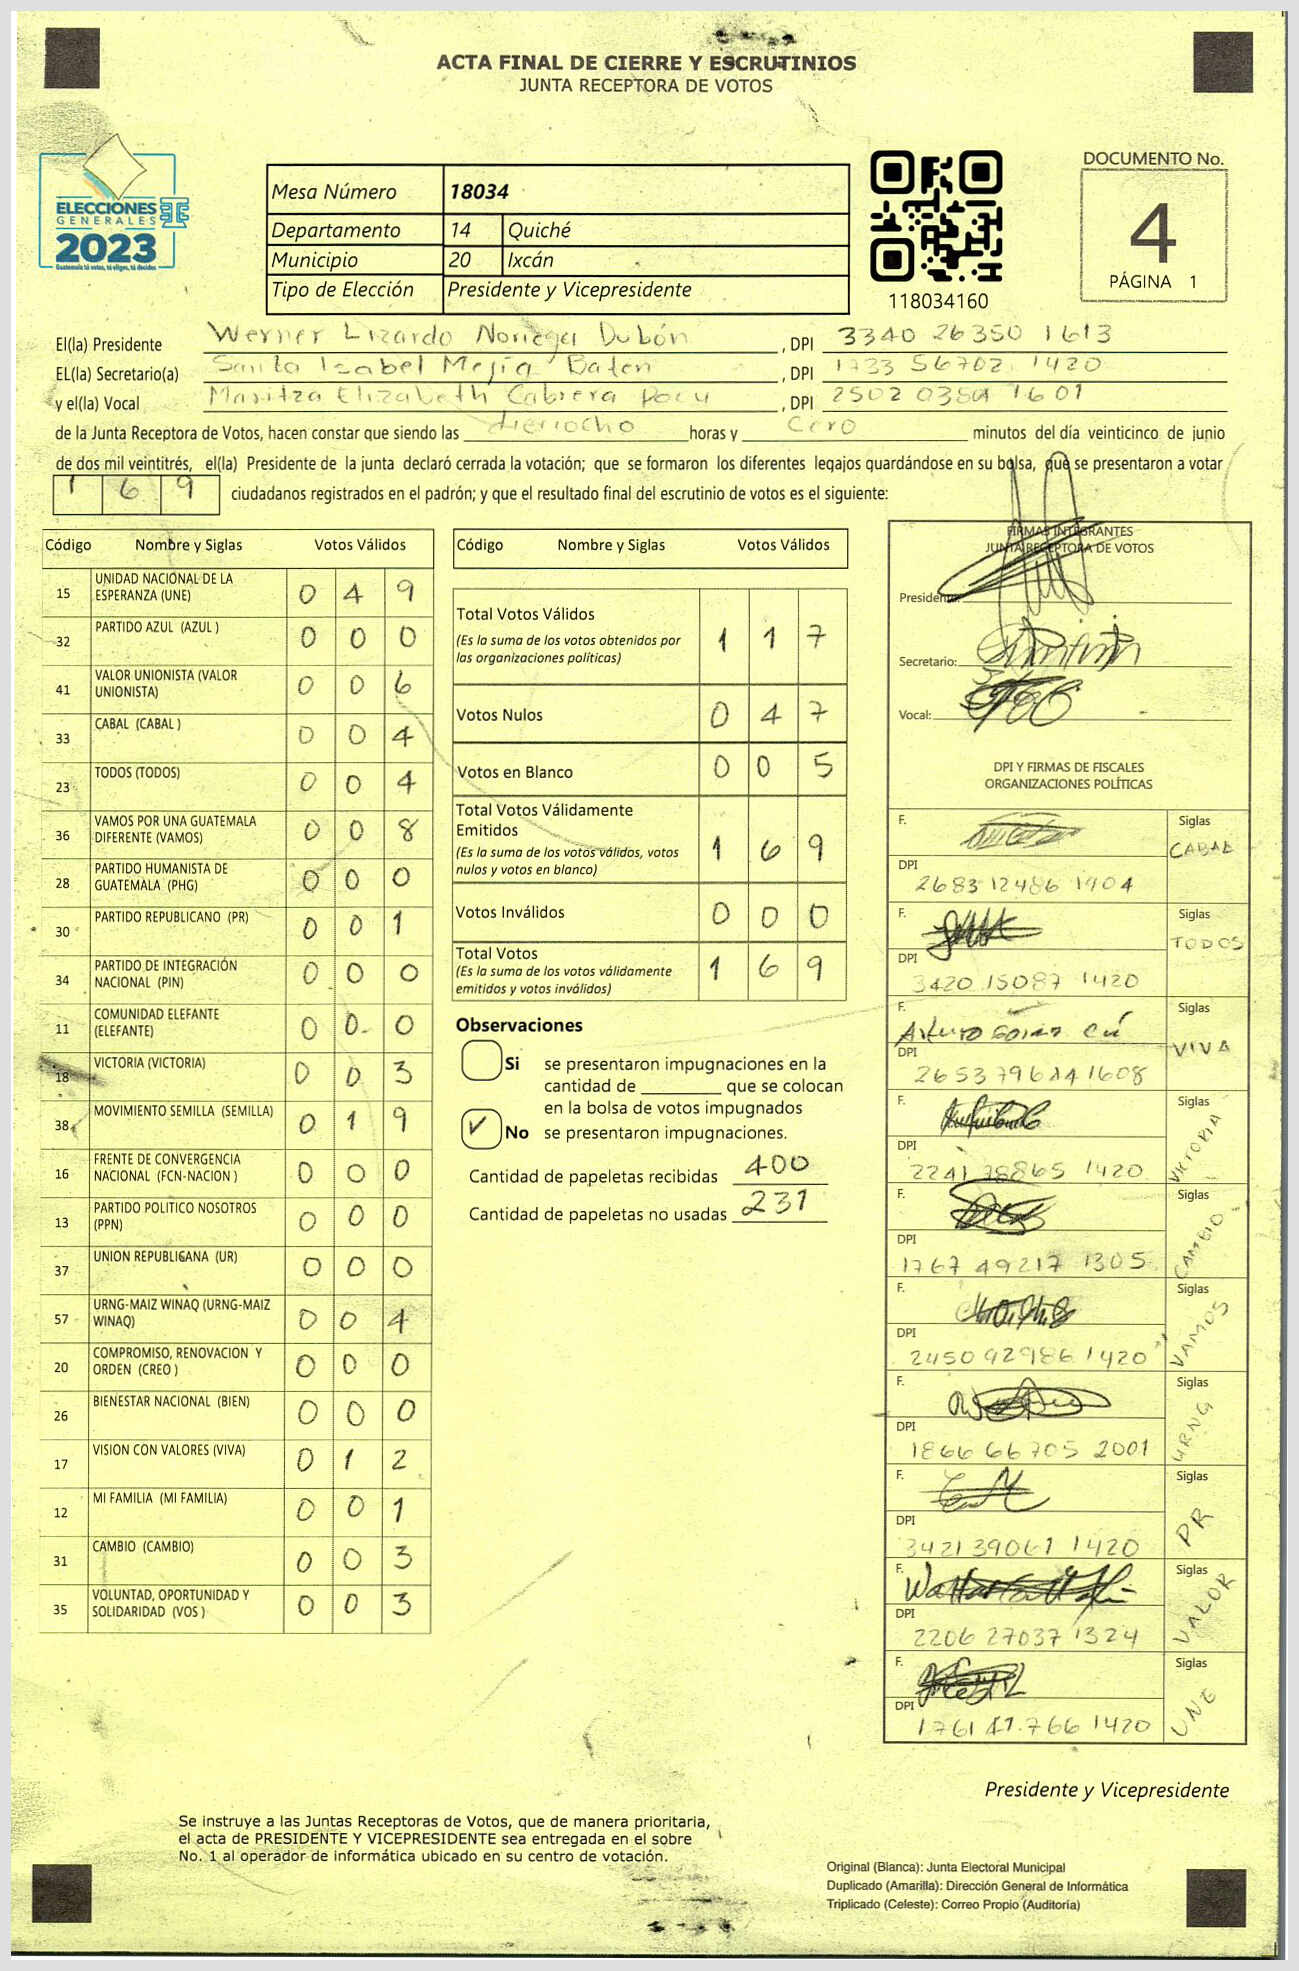 ACTA FINAL DE CIERRE Y ESCRUTINIOS
JUNTA RECEPTORA DE VOTOS
ELECCIONES
GENERALES
2023
Guatemala tú votas, tú eliges, tú decides
Mesa Número 18034
Departamento 14 Quiché
Municipio 20 Ixcán
Tipo de Elección Presidente y Vicepresidente
118034160
DOCUMENTO No.
4
PÁGINA 1
El(la) Presidente Werner Lizardo Noriega Dubón, DPI 3340 26350 1613
EL(la) Secretario(a) Santa Isabel Mejía Baten, DPI 1733 56702 1420
y el(la) Vocal Maritza Elizabeth Cabrera Pocu, DPI 2502 0389 1601
de la Junta Receptora de Votos, hacen constar que siendo las dieciocho horas y cero minutos del día veinticinco de junio
de dos mil veintitrés, el(la) Presidente de la junta declaró cerrada la votación; que se formaron los diferentes legajos guardándose en su bolsa, que se presentaron a votar
1 6 9 ciudadanos registrados en el padrón; y que el resultado final del escrutinio de votos es el siguiente:
Código Nombre y Siglas Votos Válidos
15 UNIDAD NACIONAL DE LA ESPERANZA (UNE) 0 4 9
32 PARTIDO AZUL (AZUL ) 0 0 0
41 VALOR UNIONISTA (VALOR UNIONISTA) 0 0 6
33 CABAL (CABAL ) 0 0 4
23 TODOS (TODOS) 0 0 4
36 VAMOS POR UNA GUATEMALA DIFERENTE (VAMOS) 0 0 8
28 PARTIDO HUMANISTA DE GUATEMALA (PHG) 0 0 0
30 PARTIDO REPUBLICANO (PR) 0 0 1
34 PARTIDO DE INTEGRACIÓN NACIONAL (PIN) 0 0 0
11 COMUNIDAD ELEFANTE (ELEFANTE) 0 0 0
18 VICTORIA (VICTORIA) 0 0 3
38 MOVIMIENTO SEMILLA (SEMILLA) 0 1 9
16 FRENTE DE CONVERGENCIA NACIONAL (FCN-NACION ) 0 0 0
13 PARTIDO POLITICO NOSOTROS (PPN) 0 0 0
37 UNION REPUBLICANA (UR) 0 0 0
57 URNG-MAIZ WINAQ (URNG-MAIZ WINAQ) 0 0 4
20 COMPROMISO, RENOVACION Y ORDEN (CREO ) 0 0 0
26 BIENESTAR NACIONAL (BIEN) 0 0 0
17 VISION CON VALORES (VIVA) 0 1 2
12 MI FAMILIA (MI FAMILIA) 0 0 1
31 CAMBIO (CAMBIO) 0 0 3
35 VOLUNTAD, OPORTUNIDAD Y SOLIDARIDAD (VOS ) 0 0 3
Código Nombre y Siglas Votos Válidos
Total Votos Válidos 1 1 7
(Es la suma de los votos obtenidos por
las organizaciones políticas)
Votos Nulos 0 4 7
Votos en Blanco 0 0 5
Total Votos Válidamente
Emitidos 1 6 9
(Es la suma de los votos válidos, votos
nulos y votos en blanco)
Votos Inválidos 0 0 0
Total Votos 1 6 9
(Es la suma de los votos válidamente
emitidos y votos inválidos)
Observaciones
Si se presentaron impugnaciones en la
cantidad de ________ que se colocan
en la bolsa de votos impugnados
✓ No se presentaron impugnaciones.
Cantidad de papeletas recibidas 400
Cantidad de papeletas no usadas 231
FIRMAS INTEGRANTES
JUNTA RECEPTORA DE VOTOS
Presidente:
Secretario:
Vocal:
DPI Y FIRMAS DE FISCALES
ORGANIZACIONES POLÍTICAS
F. Siglas CABAL
DPI 2683 12486 1904
F. Siglas TODOS
DPI 3420 15087 1420
F. Arturo Siglas VIVA
DPI 1608
F. Siglas VICTORIA
DPI 2241 78865 1420
F. Siglas CAMBIO
DPI 1767 49217 1305
F. Siglas VAMOS
DPI 2450 92986 1420
F. Siglas URNG
DPI 1866 66705 2001
F. Siglas PR
DPI 3421 39061 1420
F. Siglas VALOR
DPI 2206 27037 1324
F. Siglas UNE
DPI 1761 47766 1420
Presidente y Vicepresidente
Se instruye a las Juntas Receptoras de Votos, que de manera prioritaria,
el acta de PRESIDENTE Y VICEPRESIDENTE sea entregada en el sobre
No. 1 al operador de informática ubicado en su centro de votación.
Original (Blanca): Junta Electoral Municipal
Duplicado (Amarilla): Dirección General de Informática
Triplicado (Celeste): Correo Propio (Auditoría)